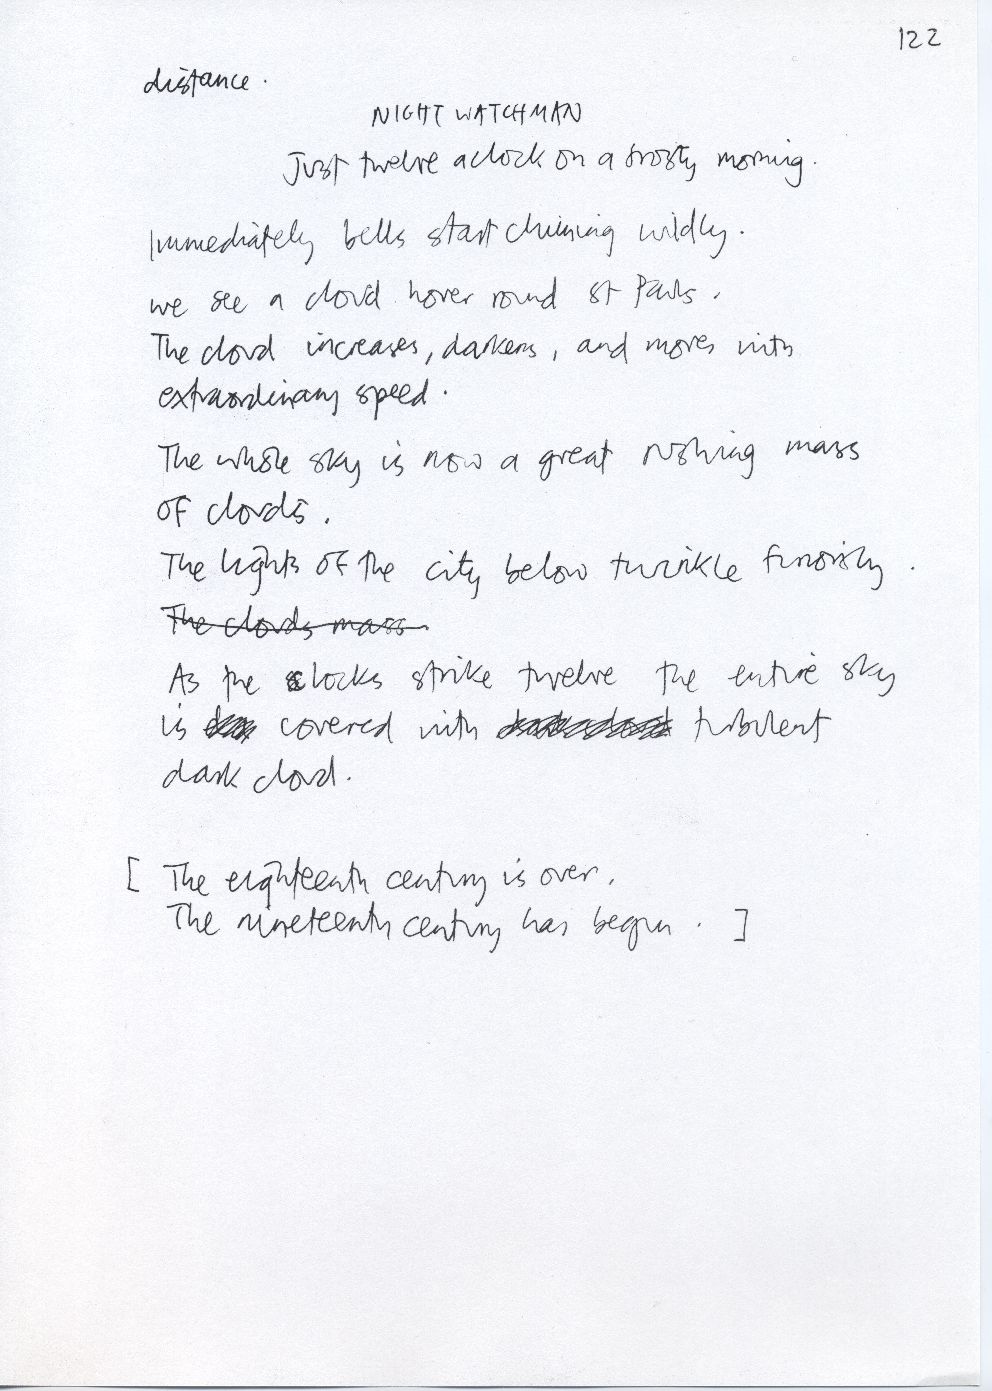 122
distance.
NIGHT WATCHMAN
Just twelve aclock on a frosty morning.
Immediately bells start chiming wildly.
we see a cloud hover round St Pauls.
The cloud increases, darkens, and moves with
extraordinary speed.
The whole sky is now a great rushing mass
of clouds.
The lights of the city below twinkle furiously.
The clouds mass
As the clocks strike twelve the entire sky
is covered with turbulent
dark cloud.
[ The eighteenth century is over.
The nineteenth century has begun. ]